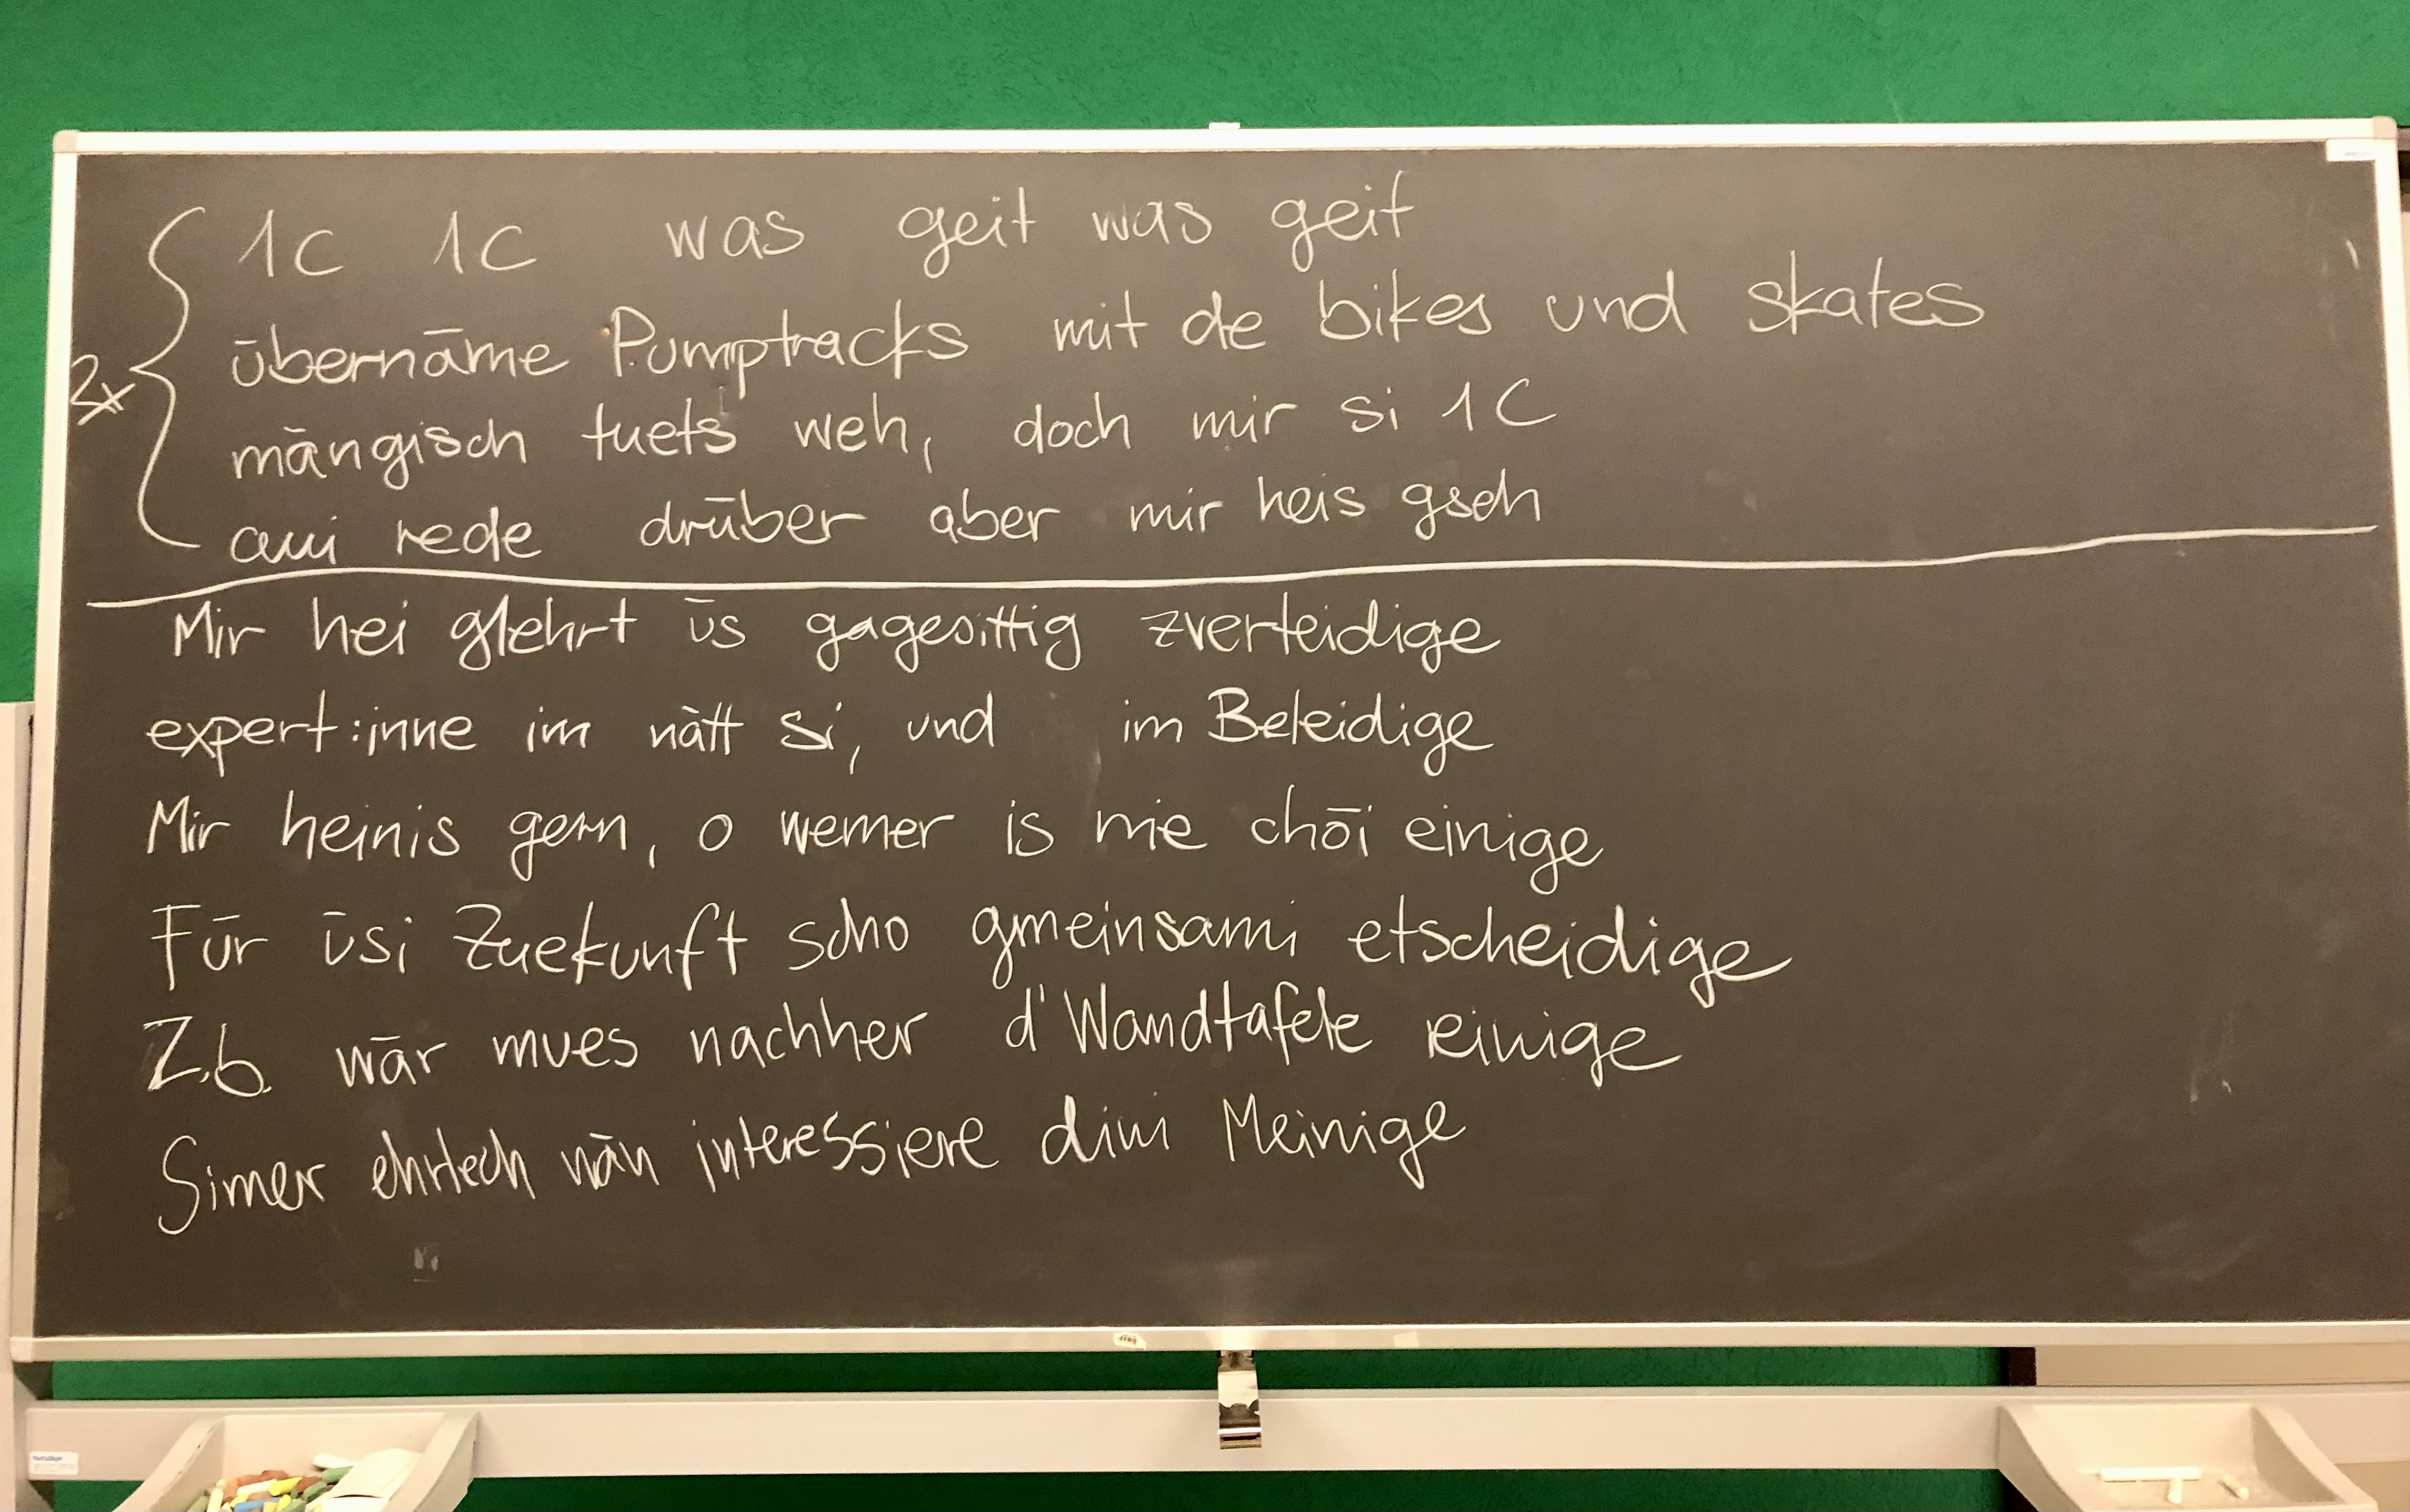 1C 1C was geit was geit
übernäme Pumptracks mit de bikes und skates
2x
mängisch tuets weh, doch mir si 1C
aui rede drüber aber mir heis gseh
Mir hei glehrt üs gagesittig zverteidige
expert:inne im nätt si, und im Beleidige
Mir heinis gern, o wemer is nie chöi einige
Für üsi Zuekunft scho gmeinsami etscheidige
Z.b. wär mues nachher d'Wandtafele reinige
Simer ehrlech wän interessiere dini Meinige